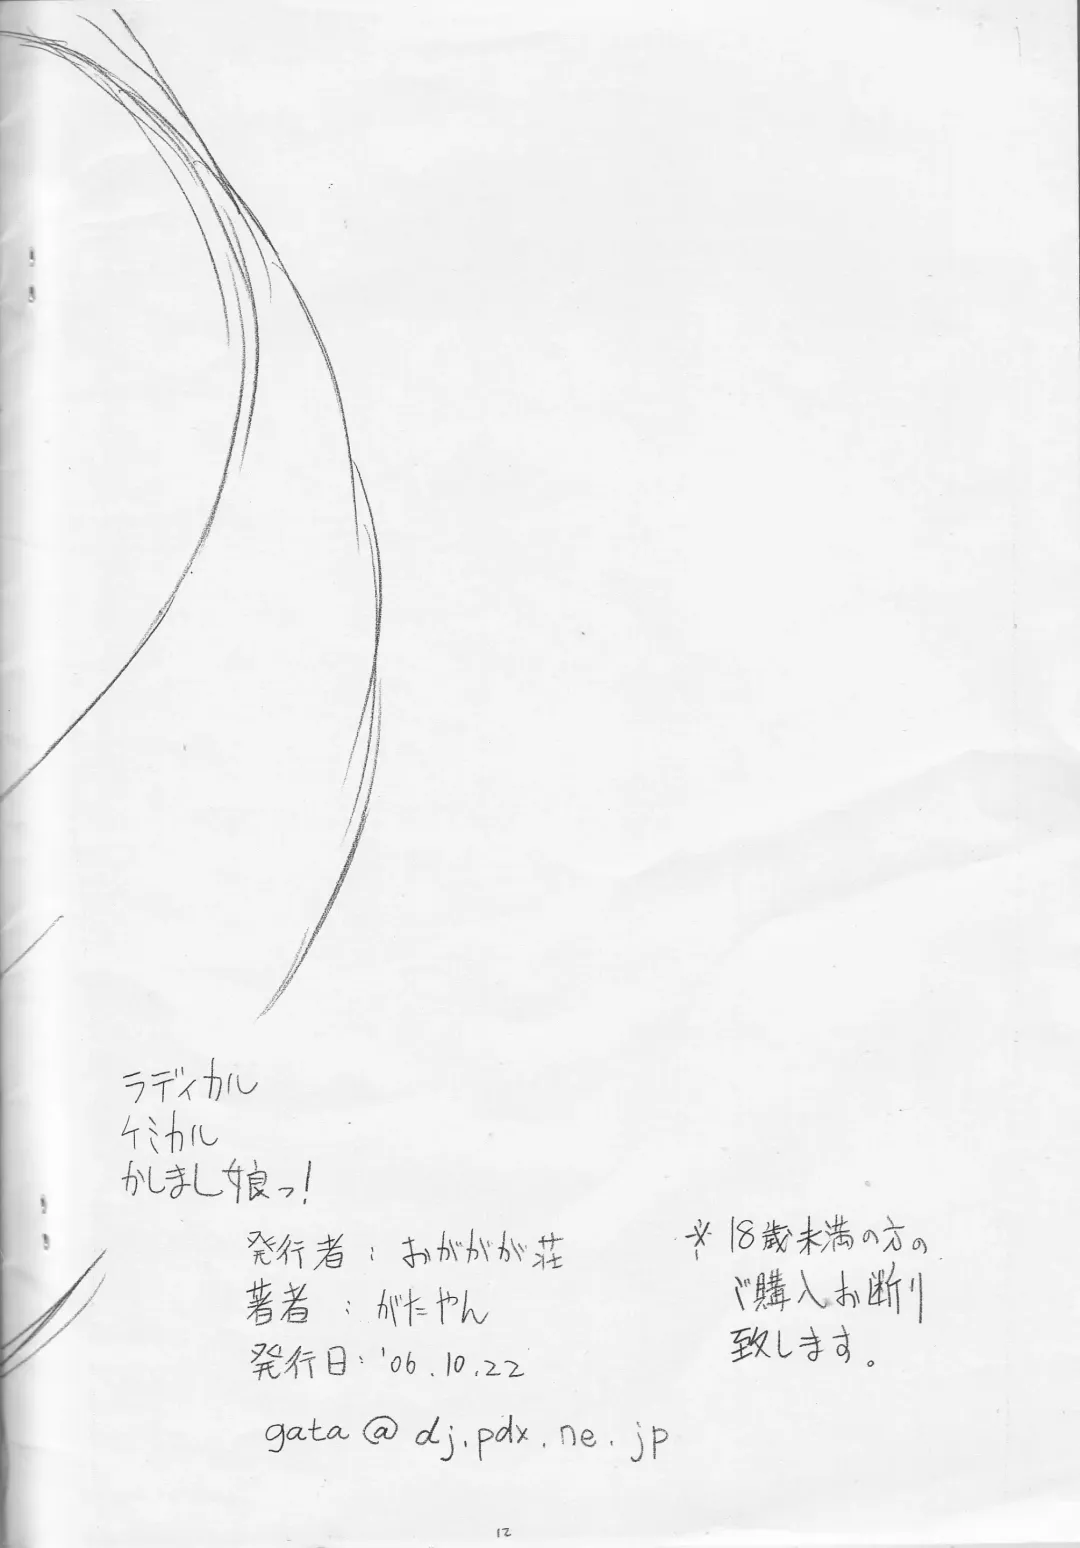 ラディカル
ケミカル
かしまし娘っ!
発行者：おががが荘
著者：がたやん
発行日：'06.10.22
gata@dj.pdx.ne.jp
※18歳未満の方の
ご購入お断り
致します。
12